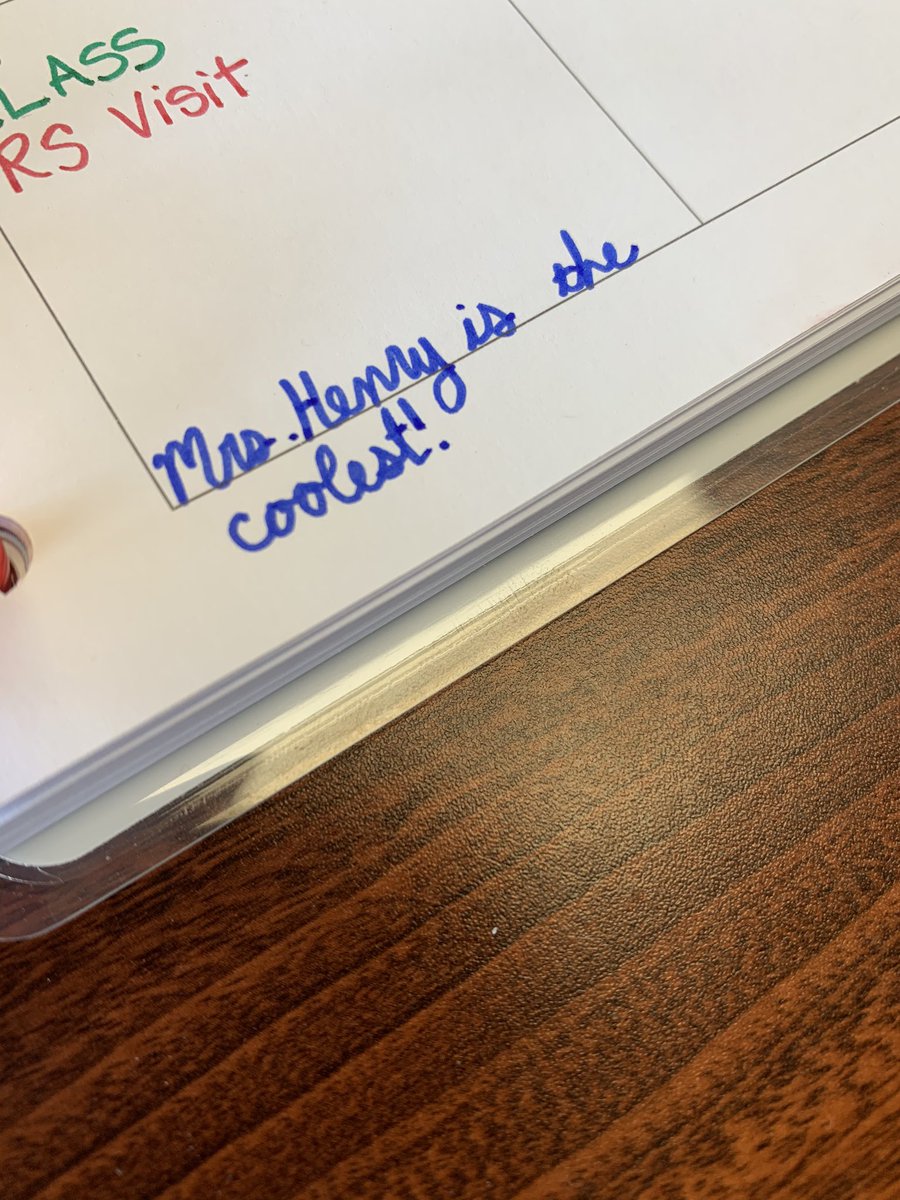 LASS
RS Visit
Mrs. Henry is the
coolest!